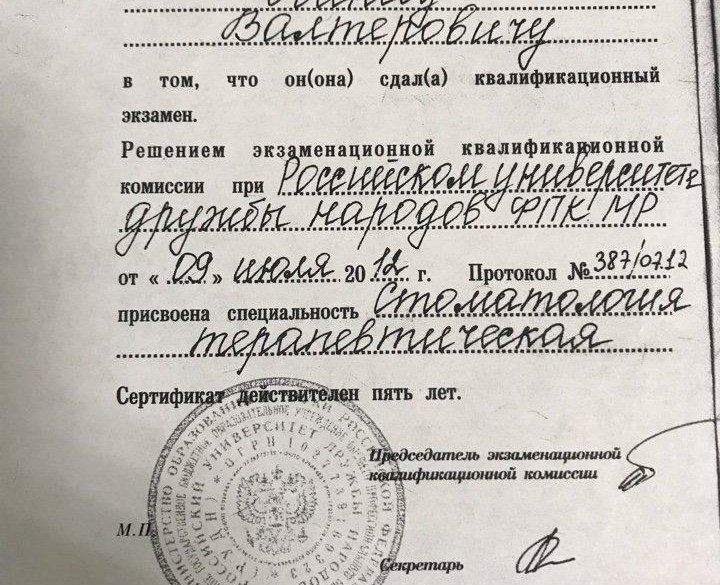 Валтеровичу
в том, что он(она) сдал(а) квалификационный
экзамен.
Решением экзаменационной квалификационной
комиссии при Российском университете
дружбы народов ФПК МР
от « 09 » июля 2012 г. Протокол № 387/0712
присвоена специальность Стоматология
терапевтическая
Сертификат действителен пять лет.
Председатель экзаменационной
квалификационной комиссии
М.П.
Секретарь
РОССИЙСКИЙ УНИВЕРСИТЕТ ДРУЖБЫ НАРОДОВ